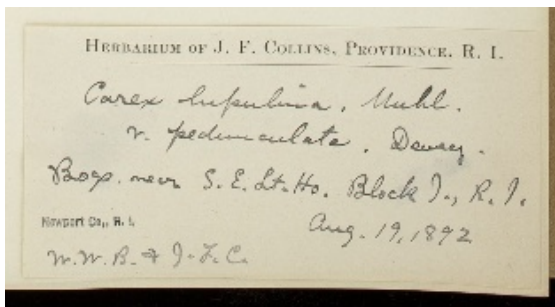 HERBARIUM OF J. F. COLLINS, PROVIDENCE, R. I.
Carex lupulina, Muhl.
v. pedunculata, Dewey.
Bogs near S. E. Lt. Ho. Block I., R. I.
Newport Co., R. I.
Aug. 19, 1892
W. W. B. & J. F. C.